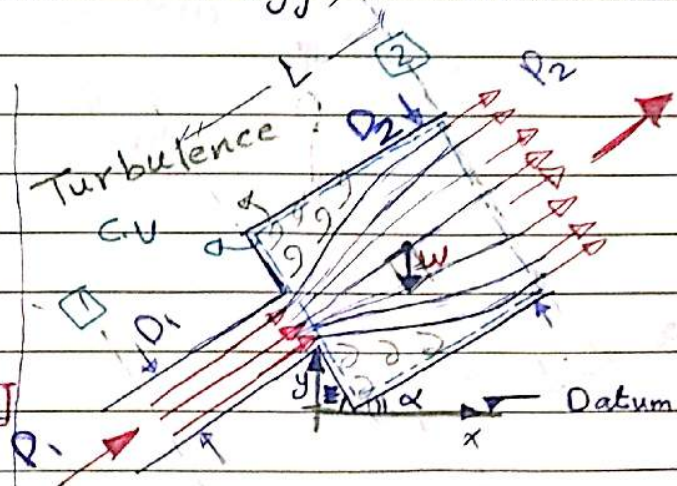 2
L
P2
D2
Turbulence
α
C.V
W
1
D1
y
α
Datum
x
P1